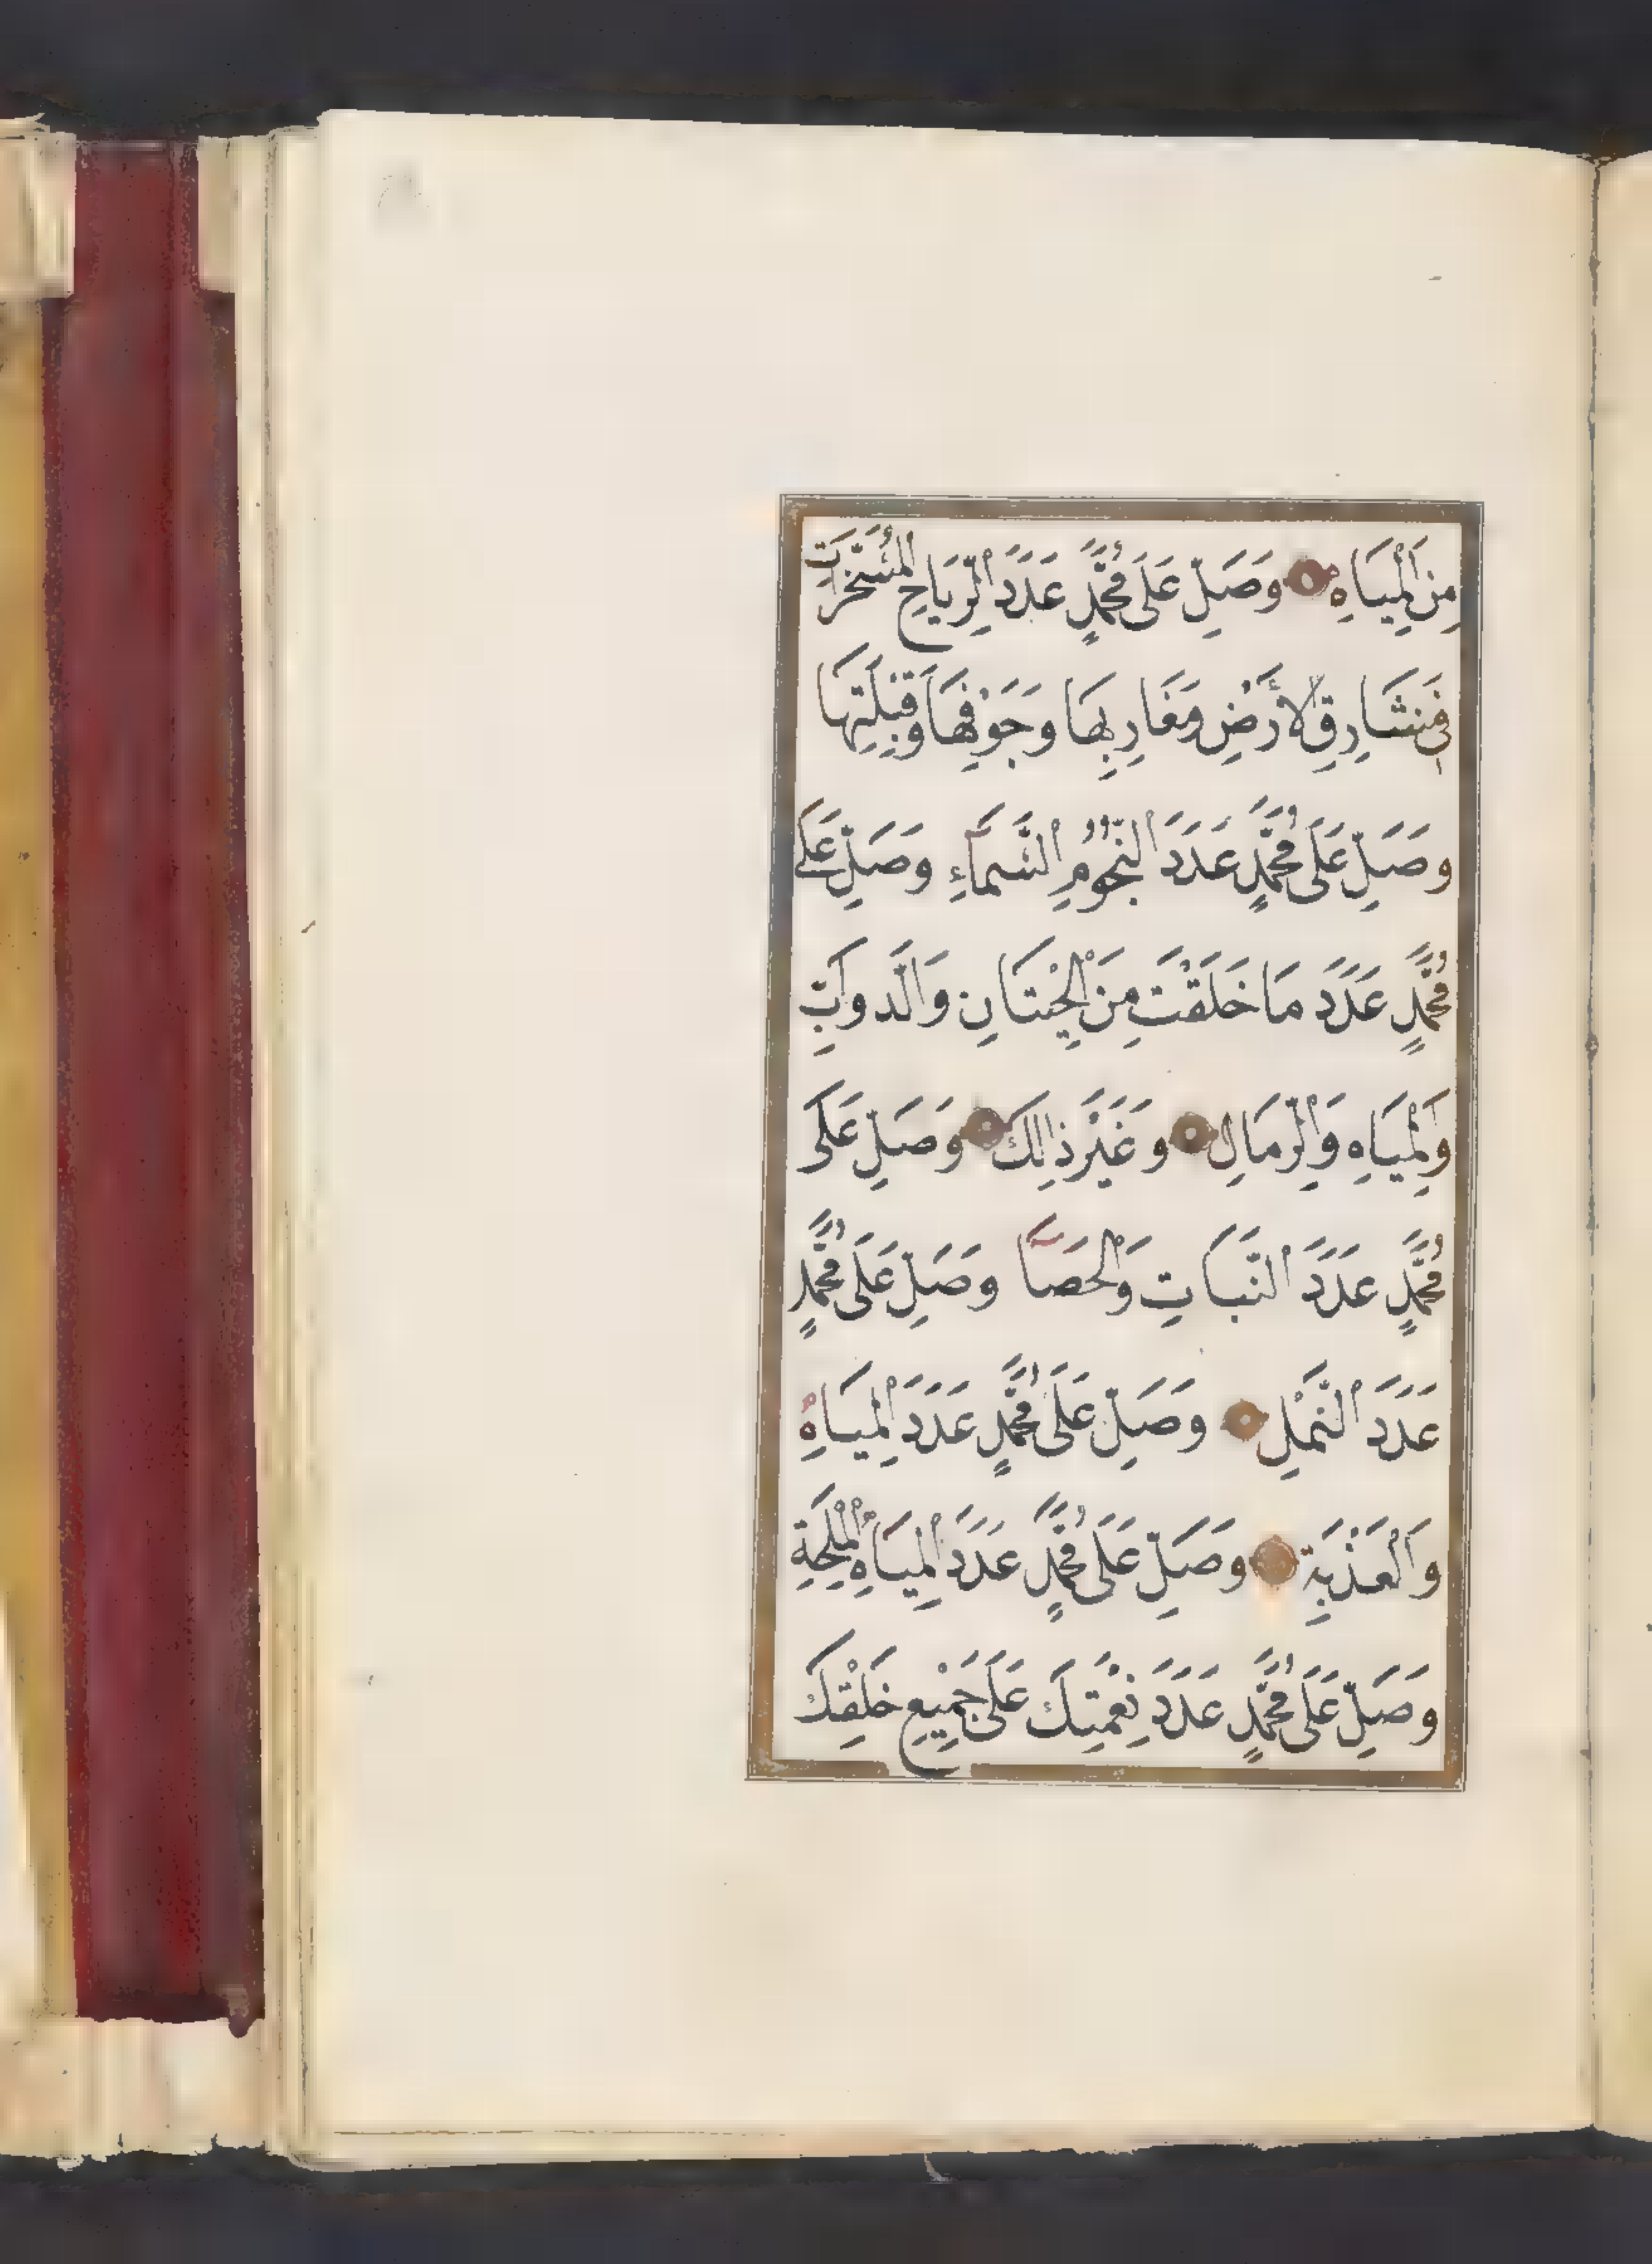 مِنَ الْمِيَاهِ وَصَلِّ عَلَى مُحَمَّدٍ عَدَدَ الرِّيَاحِ الْمُسَخَّرَاتِ
فِى مَشَارِقِ الْأَرْضِ وَمَغَارِبِهَا وَجَوْفِهَا وَقِبْلَتِهَا
وَصَلِّ عَلَى مُحَمَّدٍ عَدَدَ النُّجُومِ السَّمَاءِ وَصَلِّ عَلَى
مُحَمَّدٍ عَدَدَ مَا خَلَقْتَ مِنَ الْحِيتَانِ وَالَّدوَابِّ
وَالْمِيَاهِ وَالْرِّمَالِ وَغَيْرَ ذَالِكَ وَصَلِّ عَلَى
مُحَمَّدٍ عَدَدَ النَّبَاتِ وَالْحَصَا وَصَلِّ عَلَى مُحَمَّدٍ
عَدَدَ النَّمْلِ وَصَلِّ عَلَى مُحَمَّدٍ عَدَدَ الْمِيَاهِ
وَالْعَذْبَةِ وَصَلِّ عَلَى مُحَمَّدٍ عَدَدَ الْمِيَاهِ الْمِلْحَةِ
وَصَلِّ عَلَى مُحَمَّدٍ عَدَدَ نِعْمَتِكَ عَلَى جَمِيْعِ خَلْقِكَ